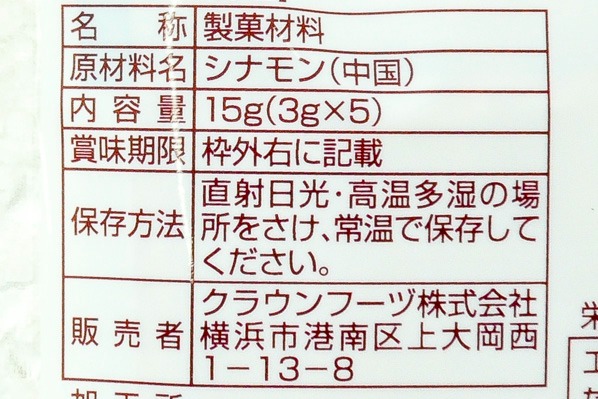 名称 製菓材料
原材料名 シナモン(中国)
内容量 15g(3g×5)
賞味期限 枠外右に記載
保存方法 直射日光・高温多湿の場
所をさけ、常温で保存して
ください。
販売者 クラウンフーヅ株式会社
横浜市港南区上大岡西
1-13-8
栄